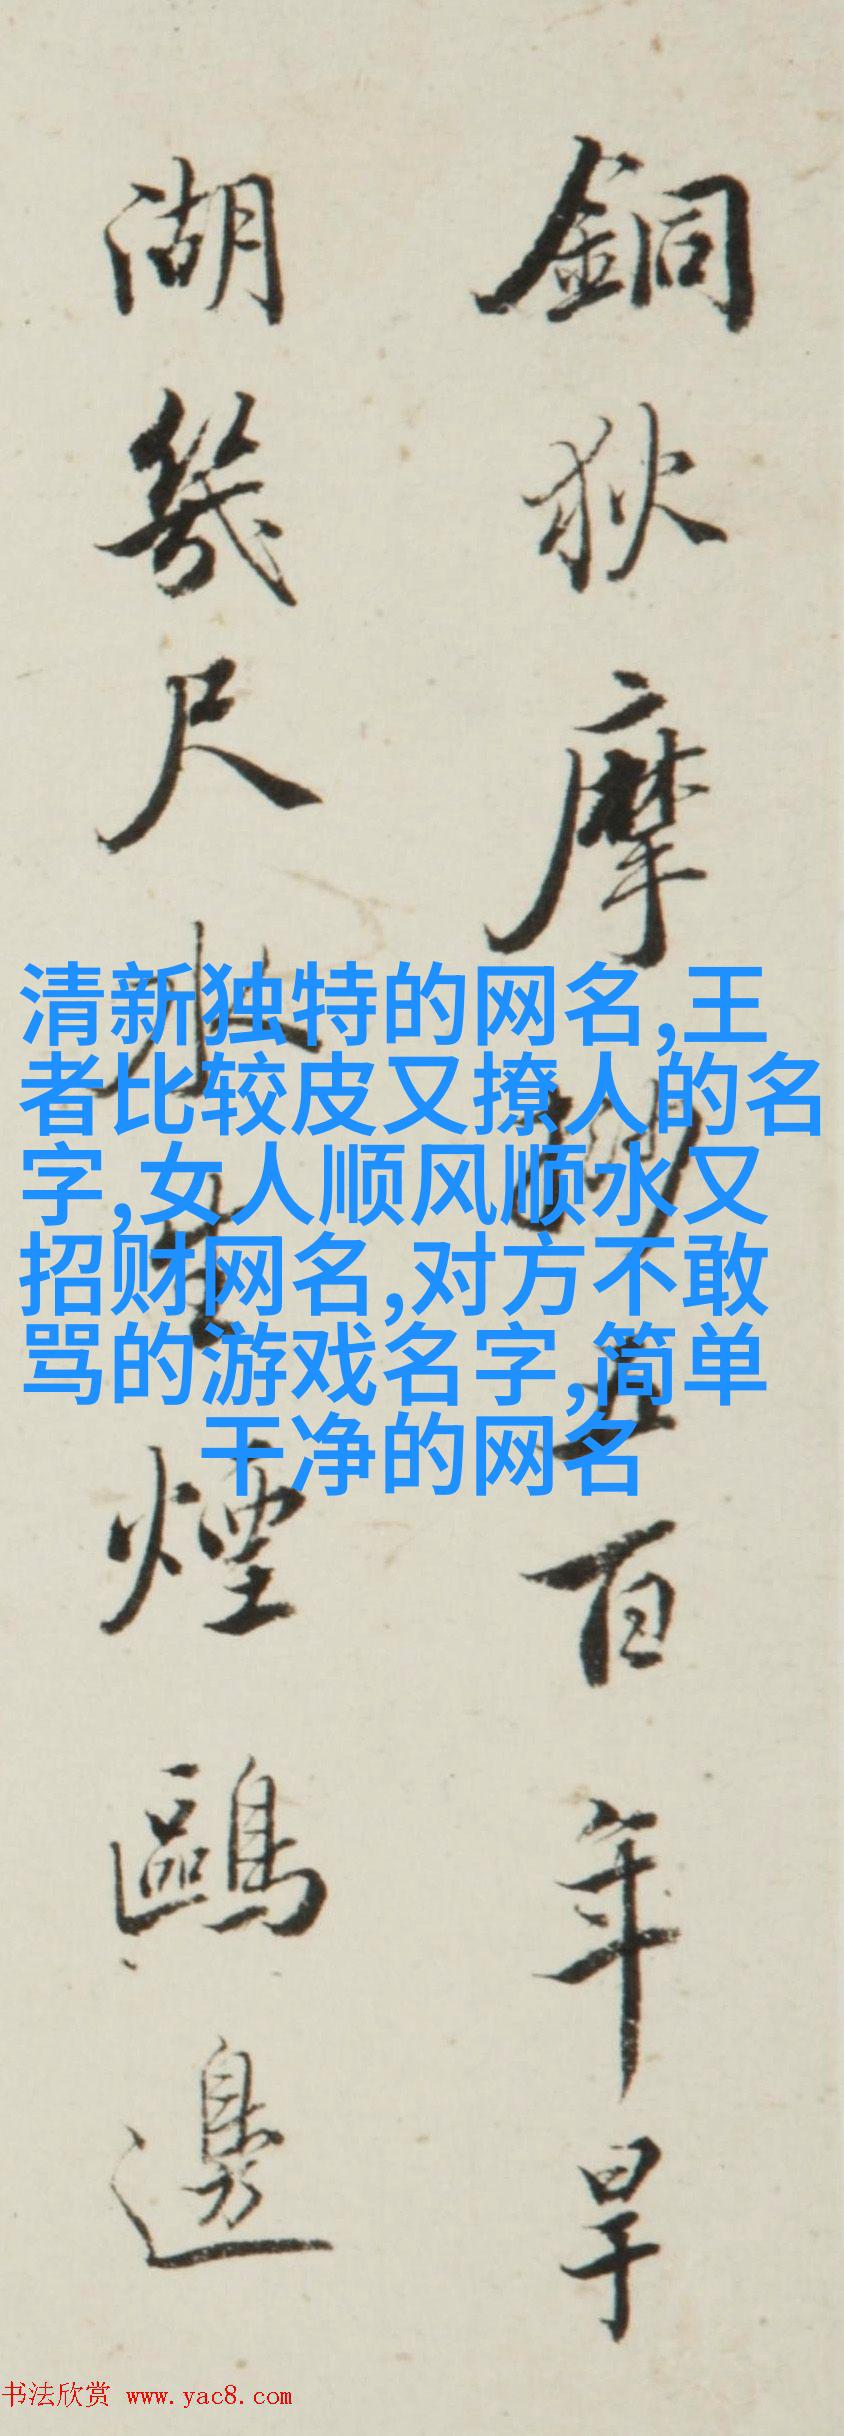 銅狄摩挲五百年旱
湖幾尺水生煙鷗邊
清新独特的网名,王
者比较皮又撩人的名
字,女人顺风顺水又
招财网名,对方不敢
骂的游戏名字,简单
干净的网名
书法欣赏 www.yac8.com